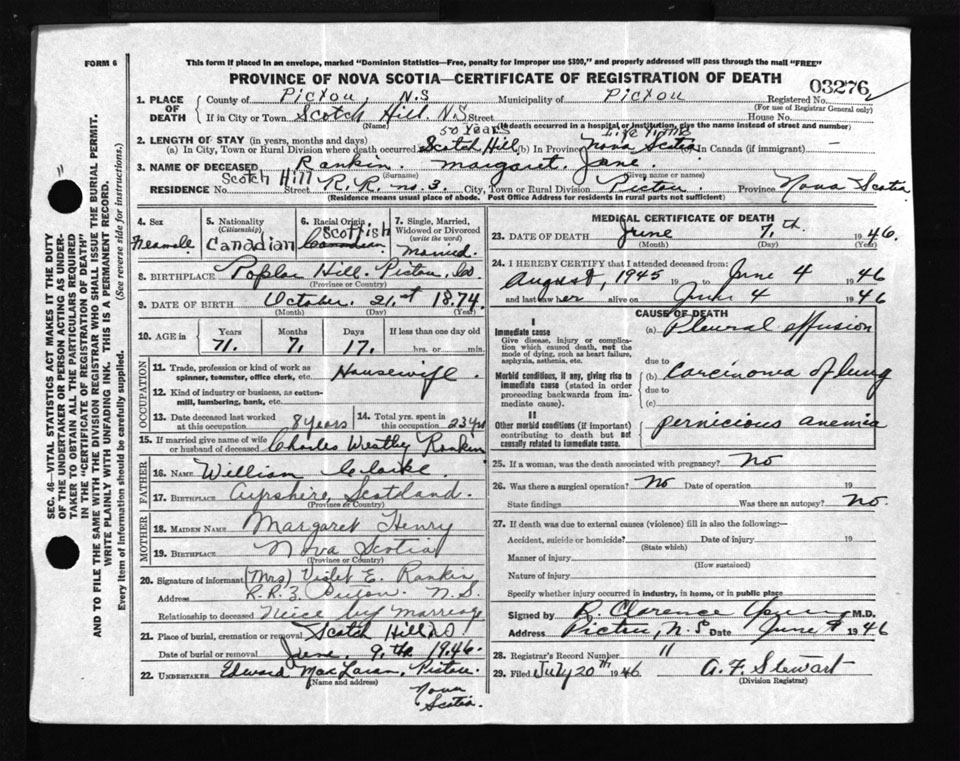 FORM 6
This form if placed in an envelope, marked "Dominion Statistics—Free, penalty for improper use $300," and properly addressed will pass through the mail "FREE"
PROVINCE OF NOVA SCOTIA—CERTIFICATE OF REGISTRATION OF DEATH
03276
1. PLACE OF DEATH County of Pictou, N.S Municipality of Pictou Registered No.
(For use of Registrar General only)
If in City or Town Scotch Hill N.S Street House No.
(Name) (If death occurred in a hospital or institution, give the name instead of street and number)
2. LENGTH OF STAY (in years, months and days) 50 Years Life Time
(a) In City, Town or Rural Division where death occurred Scotch Hill (b) In Province Nova Scotia (c) In Canada (if immigrant) —
3. NAME OF DECEASED Rankin. Margaret. Jane.
(Surname) (Given name or names)
RESIDENCE Scotch Hill Street R. R. no. 3. City, Town or Rural Division Pictou. Province Nova Scotia
(Residence means usual place of abode. Post Office Address for residents in rural parts not sufficient)
4. Sex Feamale
5. Nationality (Citizenship) Canadian
6. Racial Origin Scottish Canadian
7. Single, Married, Widowed or Divorced (write the word) Married.
8. BIRTHPLACE Poplar Hill. Pictou, Co.
(Province or Country)
9. DATE OF BIRTH October. 21.st 1874
(Month) (Day) (Year)
10. AGE in Years Months Days If less than one day old
71. 7. 17. hrs. or min.
OCCUPATION
11. Trade, profession or kind of work as spinner, teamster, office clerk, etc. Housewife.
12. Kind of industry or business, as cotton-mill, lumbering, bank, etc.
13. Date deceased last worked at this occupation 8 years
14. Total yrs. spent in this occupation 23 yrs
15. If married give name of wife or husband of deceased Charles Westley Rankin
FATHER
16. NAME William Clarke.
17. BIRTHPLACE Ayrshire, Scotland.
(Province or Country)
MOTHER
18. MAIDEN NAME Margaret Henry
19. BIRTHPLACE Nova Scotia
(Province or Country)
20. Signature of informant (Mrs) Violet E. Rankin
Address R.R.3. Pictou. N.S.
Relationship to deceased Niece by marreage
21. Place of burial, cremation or removal Scotch Hill
Date of burial or removal June. 9.th 1946.
22. UNDERTAKER Edward MacLaren, Pictou.
(Name and address)
Nova Scotia.
MEDICAL CERTIFICATE OF DEATH
23. DATE OF DEATH June 7.th 1946.
(Month) (Day) (Year)
24. I HEREBY CERTIFY that I attended deceased from:
August, 1945 19 to June 4 1946
and last saw her alive on June 4 1946
CAUSE OF DEATH
I
Immediate cause (a) Pleural effusion
Give disease, injury or complication which caused death, not the mode of dying, such as heart failure, asphyxia, asthenia, etc.
due to
Morbid conditions, if any, giving rise to immediate cause (stated in order proceeding backwards from immediate cause). (b) Carcinoma of lung
due to
(c)
II
Other morbid conditions (if important) contributing to death but not causally related to immediate cause. pernicious anemia
25. If a woman, was the death associated with pregnancy? No
26. Was there a surgical operation? No Date of operation 19
State findings Was there an autopsy? No
27. If death was due to external causes (violence) fill in also the following:—
Accident, suicide or homicide? Date of injury 19
(State which)
Manner of injury
(How sustained)
Nature of injury
Specify whether injury occurred in industry, in home, or in public place
Signed by R. Clarence Young M.D.
Address Pictou, N.S Date June 1946
28. Registrar's Record Number 11
29. Filed July 20th 1946 A. F. Stewart
(Division Registrar)
SEC. 46—VITAL STATISTICS ACT MAKES IT THE DUTY
OF THE UNDERTAKER OR PERSON ACTING AS UNDER-
TAKER TO OBTAIN ALL THE PARTICULARS REQUIRED
IN THE "CERTIFICATE OF REGISTRATION OF DEATH"
AND TO FILE THE SAME WITH THE DIVISION REGISTRAR WHO SHALL ISSUE THE BURIAL PERMIT.
WRITE PLAINLY WITH UNFADING INK. THIS IS A PERMANENT RECORD.
Every item of information should be carefully supplied. (See reverse side for instructions.)